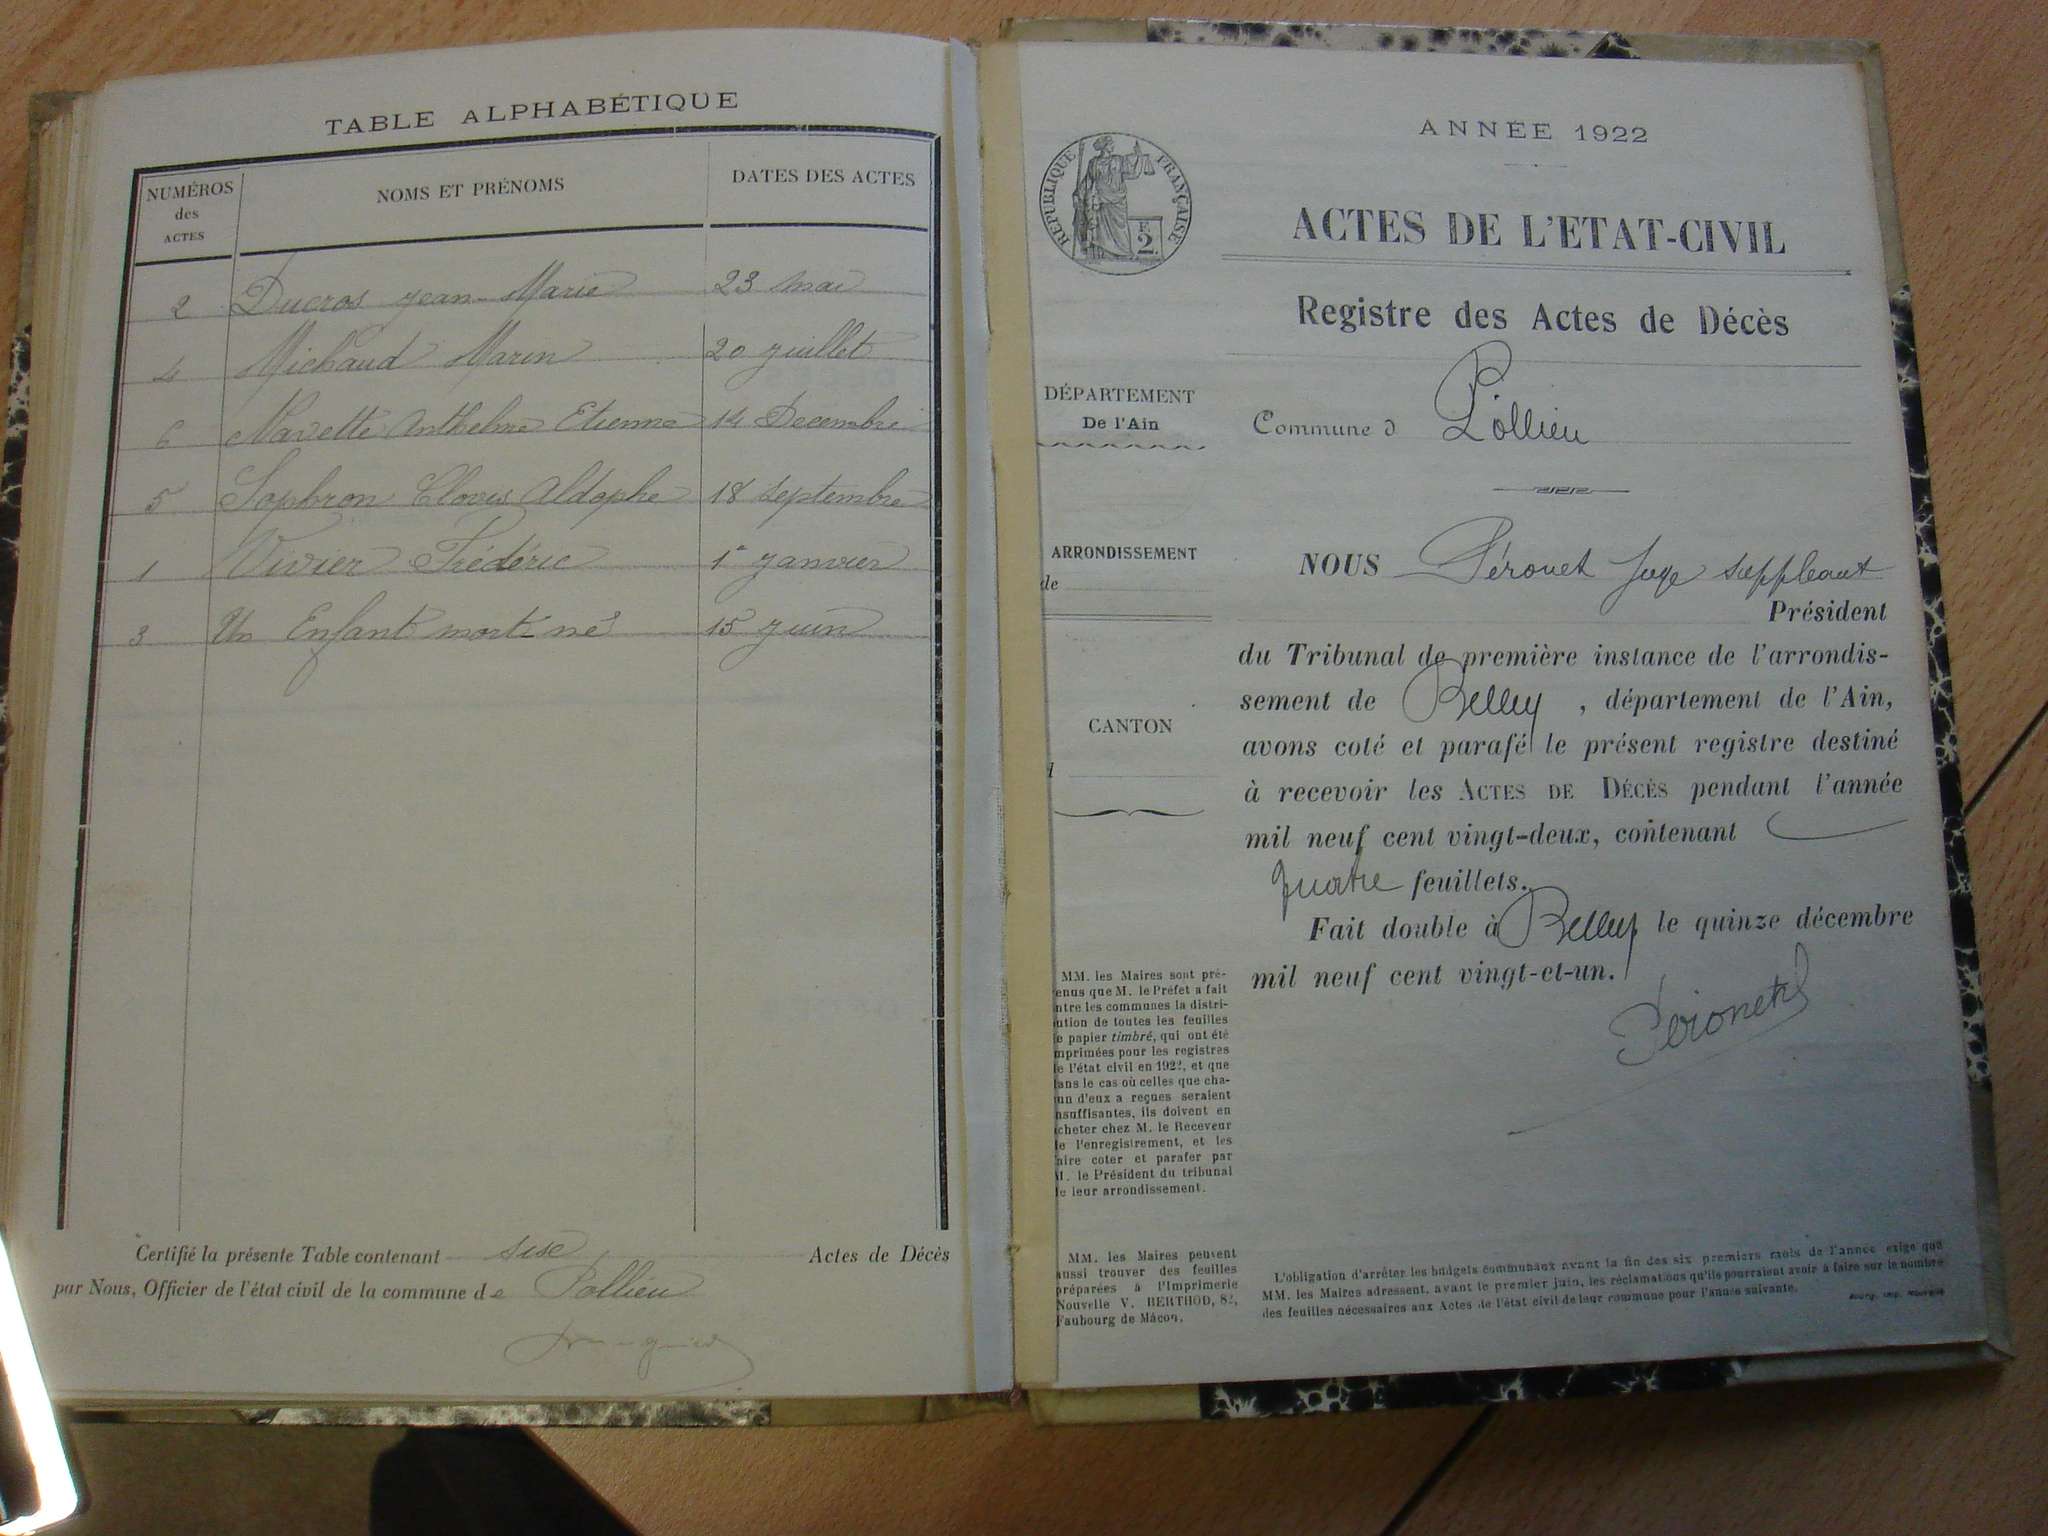 TABLE ALPHABÉTIQUE
NUMÉROS
des
ACTES
NOMS ET PRÉNOMS
DATES DES ACTES
2 Ducros Jean-Marie 23 mai
4 Michaud Marin 20 Juillet
6 Navette Anthelme Etienne 14 Decembre
5 Sophron Clovis Aldophe 18 septembre
1 Vivier Frédéric 1er Janvier
3 Un Enfant mort né 15 Juin
Certifié la présente Table contenant sise Actes de Décès
par Nous, Officier de l'état civil de la commune de Pollieu
ANNÉE 1922
RÉPUBLIQUE FRANÇAISE
2 F
ACTES DE L'ETAT-CIVIL
Registre des Actes de Décès
DÉPARTEMENT
De l'Ain
Commune d Pollieu
ARRONDISSEMENT
de
NOUS Péronet Juge suppleant
Président
du Tribunal de première instance de l'arrondis-
sement de Belley, département de l'Ain,
avons coté et parafé le présent registre destiné
à recevoir les ACTES DE DÉCÈS pendant l'année
mil neuf cent vingt-deux, contenant
quatre feuillets.
Fait double à Belley le quinze décembre
mil neuf cent vingt-et-un.
Péronet
CANTON
d
MM. les Maires sont pré-
enus que M. le Préfet a fait
ntre les communes la distri-
ution de toutes les feuilles
e papier timbré, qui ont été
mprimées pour les registres
e l'état civil en 1922, et que
ans le cas où celles que cha-
un d'eux a reçues seraient
nsuffisantes, ils doivent en
cheter chez M. le Receveur
e l'enregistrement, et les
aire coter et parafer par
M. le Président du tribunal
e leur arrondissement.
MM. les Maires peuvent
aussi trouver des feuilles
préparées à l'Imprimerie
Nouvelle V. BERTHOD, 82,
Faubourg de Mâcon.
L'obligation d'arrêter les budgets communaux avant la fin des six premiers mois de l'année exige que
MM. les Maires adressent, avant le premier juin, les réclamations qu'ils pourraient avoir à faire sur le nombre
des feuilles nécessaires aux Actes de l'état civil de leur commune pour l'année suivante.
Bourg, Imp. Nouvelle